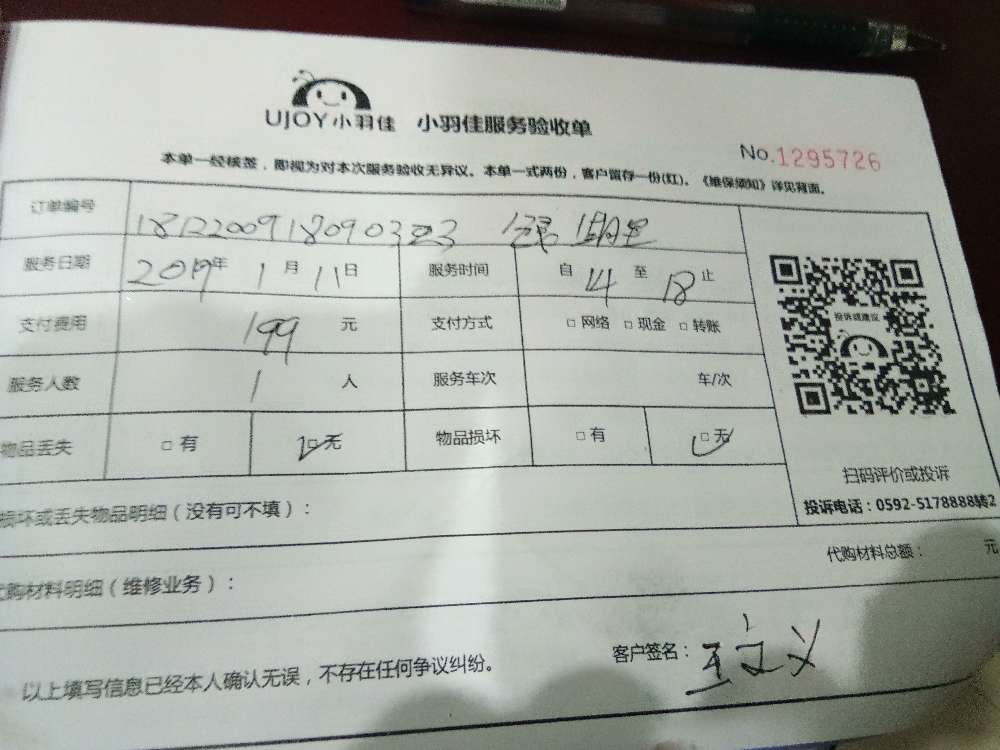 UJOY小羽佳 小羽佳服务验收单
No.1295726
本单一经核签，即视为对本次服务验收无异议。本单一式两份，客户留存一份(红)。《维保须知》详见背面。
订单编号 1812200918090323
服务日期 2019年 1月 11日 服务时间 自 14 至 18 止
支付费用 199 元 支付方式 □ 网络 □ 现金 □ 转账
服务人数 1 人 服务车次 车/次
物品丢失 □ 有 □ 无 物品损坏 □ 有 □ 无
投诉或建议
扫码评价或投诉
投诉电话：0592-5178888转2
损坏或丢失物品明细（没有可不填）：
代购材料总额： 元
代购材料明细（维修业务）：
以上填写信息已经本人确认无误，不存在任何争议纠纷。
客户签名：